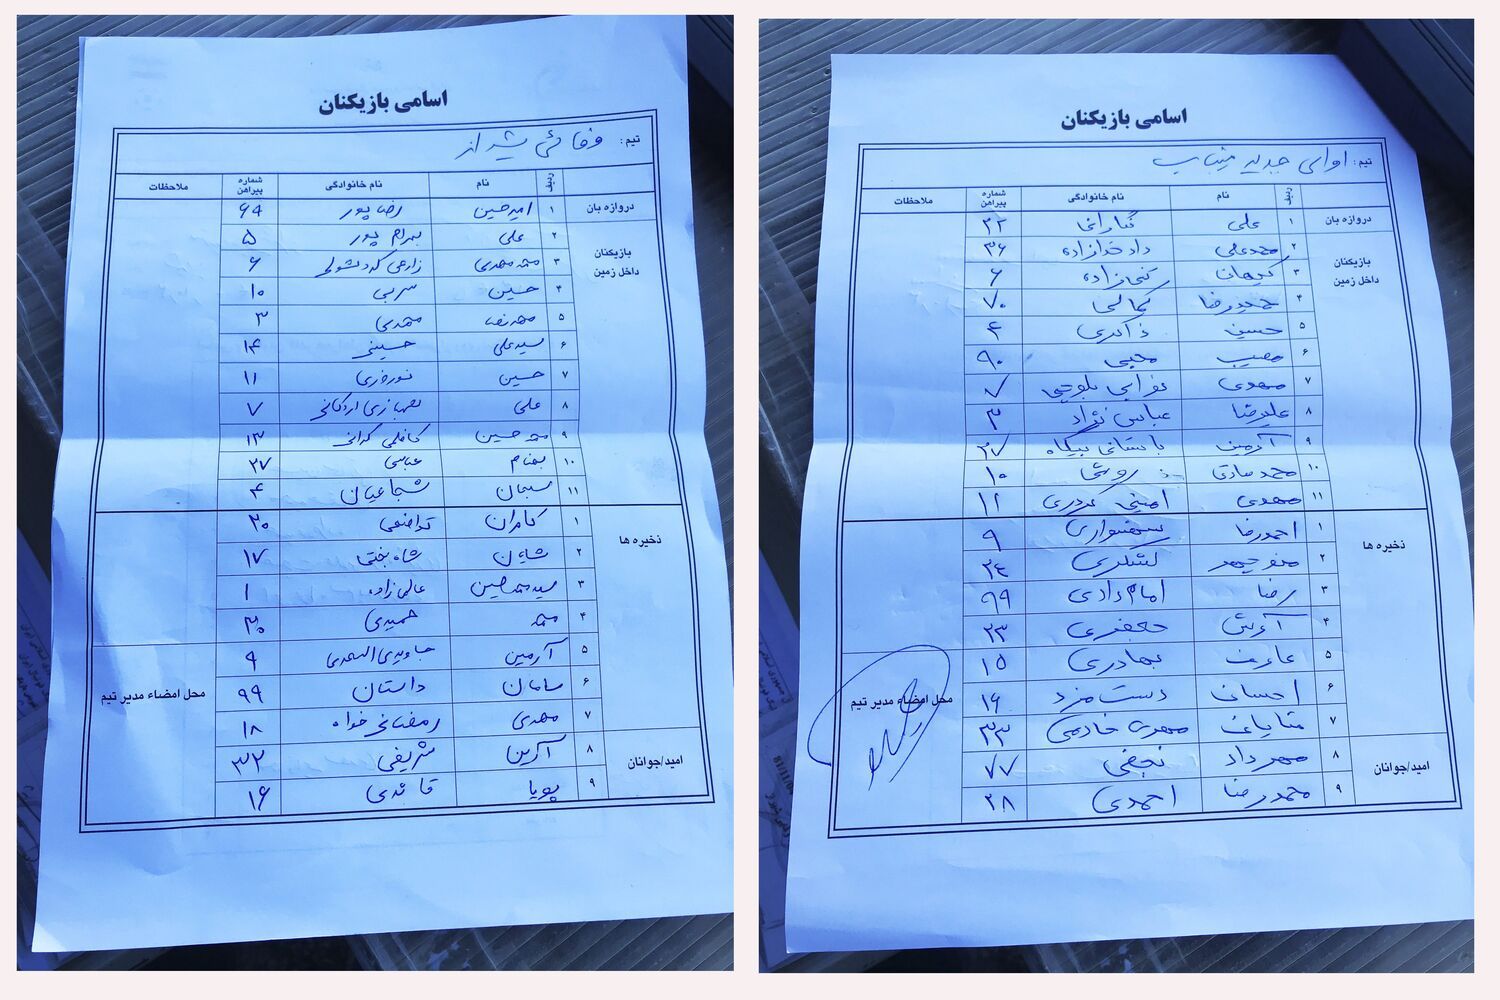 اسامی بازیکنان
تیم: شیراز
ردیف نام نام خانوادگی شماره پیراهن ملاحظات
دروازه بان ۱ امیرحسین رضاپور ۶۴
بازیکنان داخل زمین
۲ علی بهرام پور ۵
۳ محمدمهدی زارعی ۶
۴ حسین سربی ۱۰
۵ محمدی ۳
۶ سیدعلی حسینی ۱۴
۷ حسین نوروزی ۱۱
۸ علی ۷
۹ محمدحسین کاظمی ۱۳
۱۰ بهنام عباسی ۲۷
۱۱ سبحان شجاعیان ۴
ذخیره ها
۱ کامران تواضعی ۲۰
۲ شایان شاه بختی ۱۷
۳ سیدمحمدحسین عالی زاده ۱
۴ محمد حمیدی ۳۰
۵ آرمین جاویدی ۹
۶ سامان داستان ۹۹
۷ مهدی رمضانی خواه ۱۸
امید/جوانان
۸ آرین شریفی ۳۲
۹ پویا قائدی ۱۶
محل امضاء مدیر تیم
اسامی بازیکنان
تیم: اوای جدید میناب
ردیف نام نام خانوادگی شماره پیراهن ملاحظات
دروازه بان ۱ علی ۲۲
بازیکنان داخل زمین
۲ محمدعلی دادخدازاده ۳۶
۳ کیهان ۶
۴ حمیدرضا کمالی ۷۰
۵ حسین ذاکری ۴
۶ مصیب محبی ۹۰
۷ مهدی نوایی بلوچی ۷
۸ علیرضا عباس نژاد ۳
۹ آرمین باستانی بیکاه ۲۷
۱۰ محمدصادق ۱۰
۱۱ مهدی امینی ۱۱
ذخیره ها
۱ احمدرضا ۹
۲ منوچهر لشکری ۲۴
۳ رضا امام دادی ۹۹
۴ آرش جعفری ۲۳
۵ عارف بهادری ۱۵
۶ احسان دست مزد ۱۶
۷ شایان مهدی خادمی ۳۳
امید/جوانان
۸ مهرداد نجفی ۷۷
۹ محمدرضا احمدی ۲۸
محل امضاء مدیر تیم